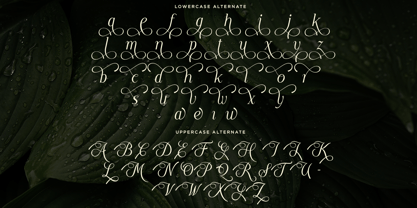 LOWERCASE ALTERNATE
a e f g h i j k
l m n p t u x y z
b c d h k l o r
s u v w x y
a e i w
UPPERCASE ALTERNATE
A B C D E F G H I J K
L M N O P Q R S T U
V W X Y Z